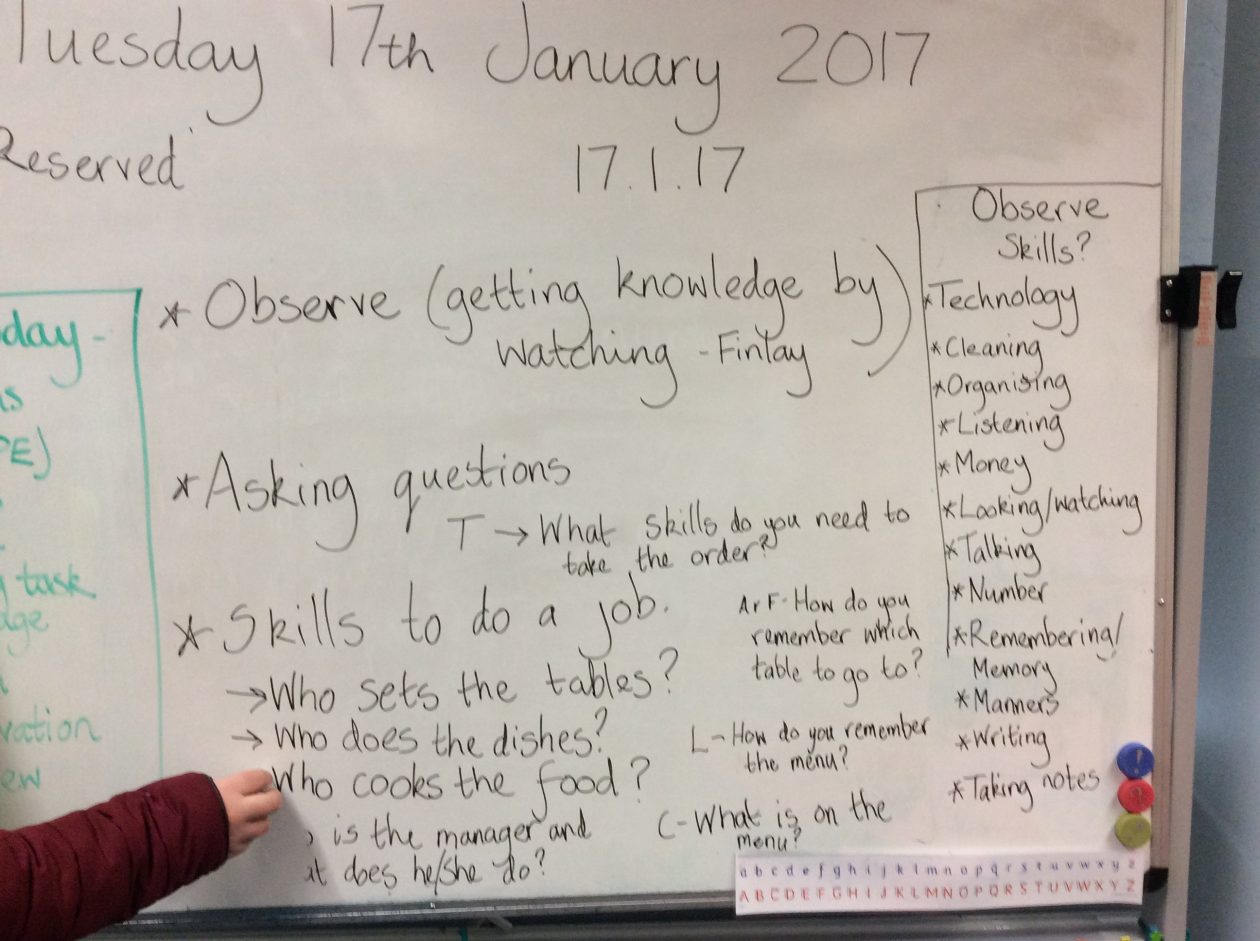 Tuesday 17th January 2017
Reserved
17.1.17
day -
PE)
task
vation
ew
* Observe (getting knowledge by)
watching - Finlay
* Asking questions
T → What skills do you need to
take the order?
* Skills to do a job.
→ Who sets the tables?
→ Who does the dishes?
Who cooks the food?
is the manager and
at does he/she do?
A r F - How do you
remember which
table to go to?
L - How do you remember
the menu?
C - What is on the
menu?
Observe
Skills?
* Technology
* Cleaning
* Organising
* Listening
* Money
* Looking/watching
* Talking
* Number
* Remembering/
Memory
* Manners
* Writing
* Taking notes
!
?
a b c d e f g h i j k l m n o p q r s t u v w x y z
A B C D E F G H I J K L M N O P Q R S T U V W X Y Z